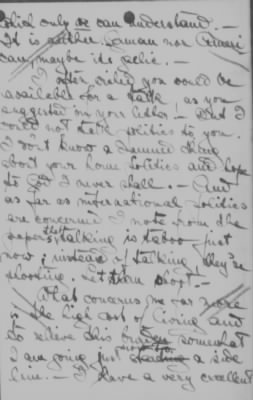 which only we can understand. —
It is neither German nor Ameri
can, maybe its celtic. —
I often wished you would be
available for a talk as you
suggested in your letter! — But I
could not talk politics to you.
I don't know a damned thing
about your home politics and hope
to God I never shall. — And
as far as international politics
are concerned I note from the
papers that talking is taboo just
now; instead of talking they're
shooting. Let them shoot. —
What concerns me far more
is the high cost of living and
to relieve this burden somewhat
I am going just a side
line. — I have a very excellent